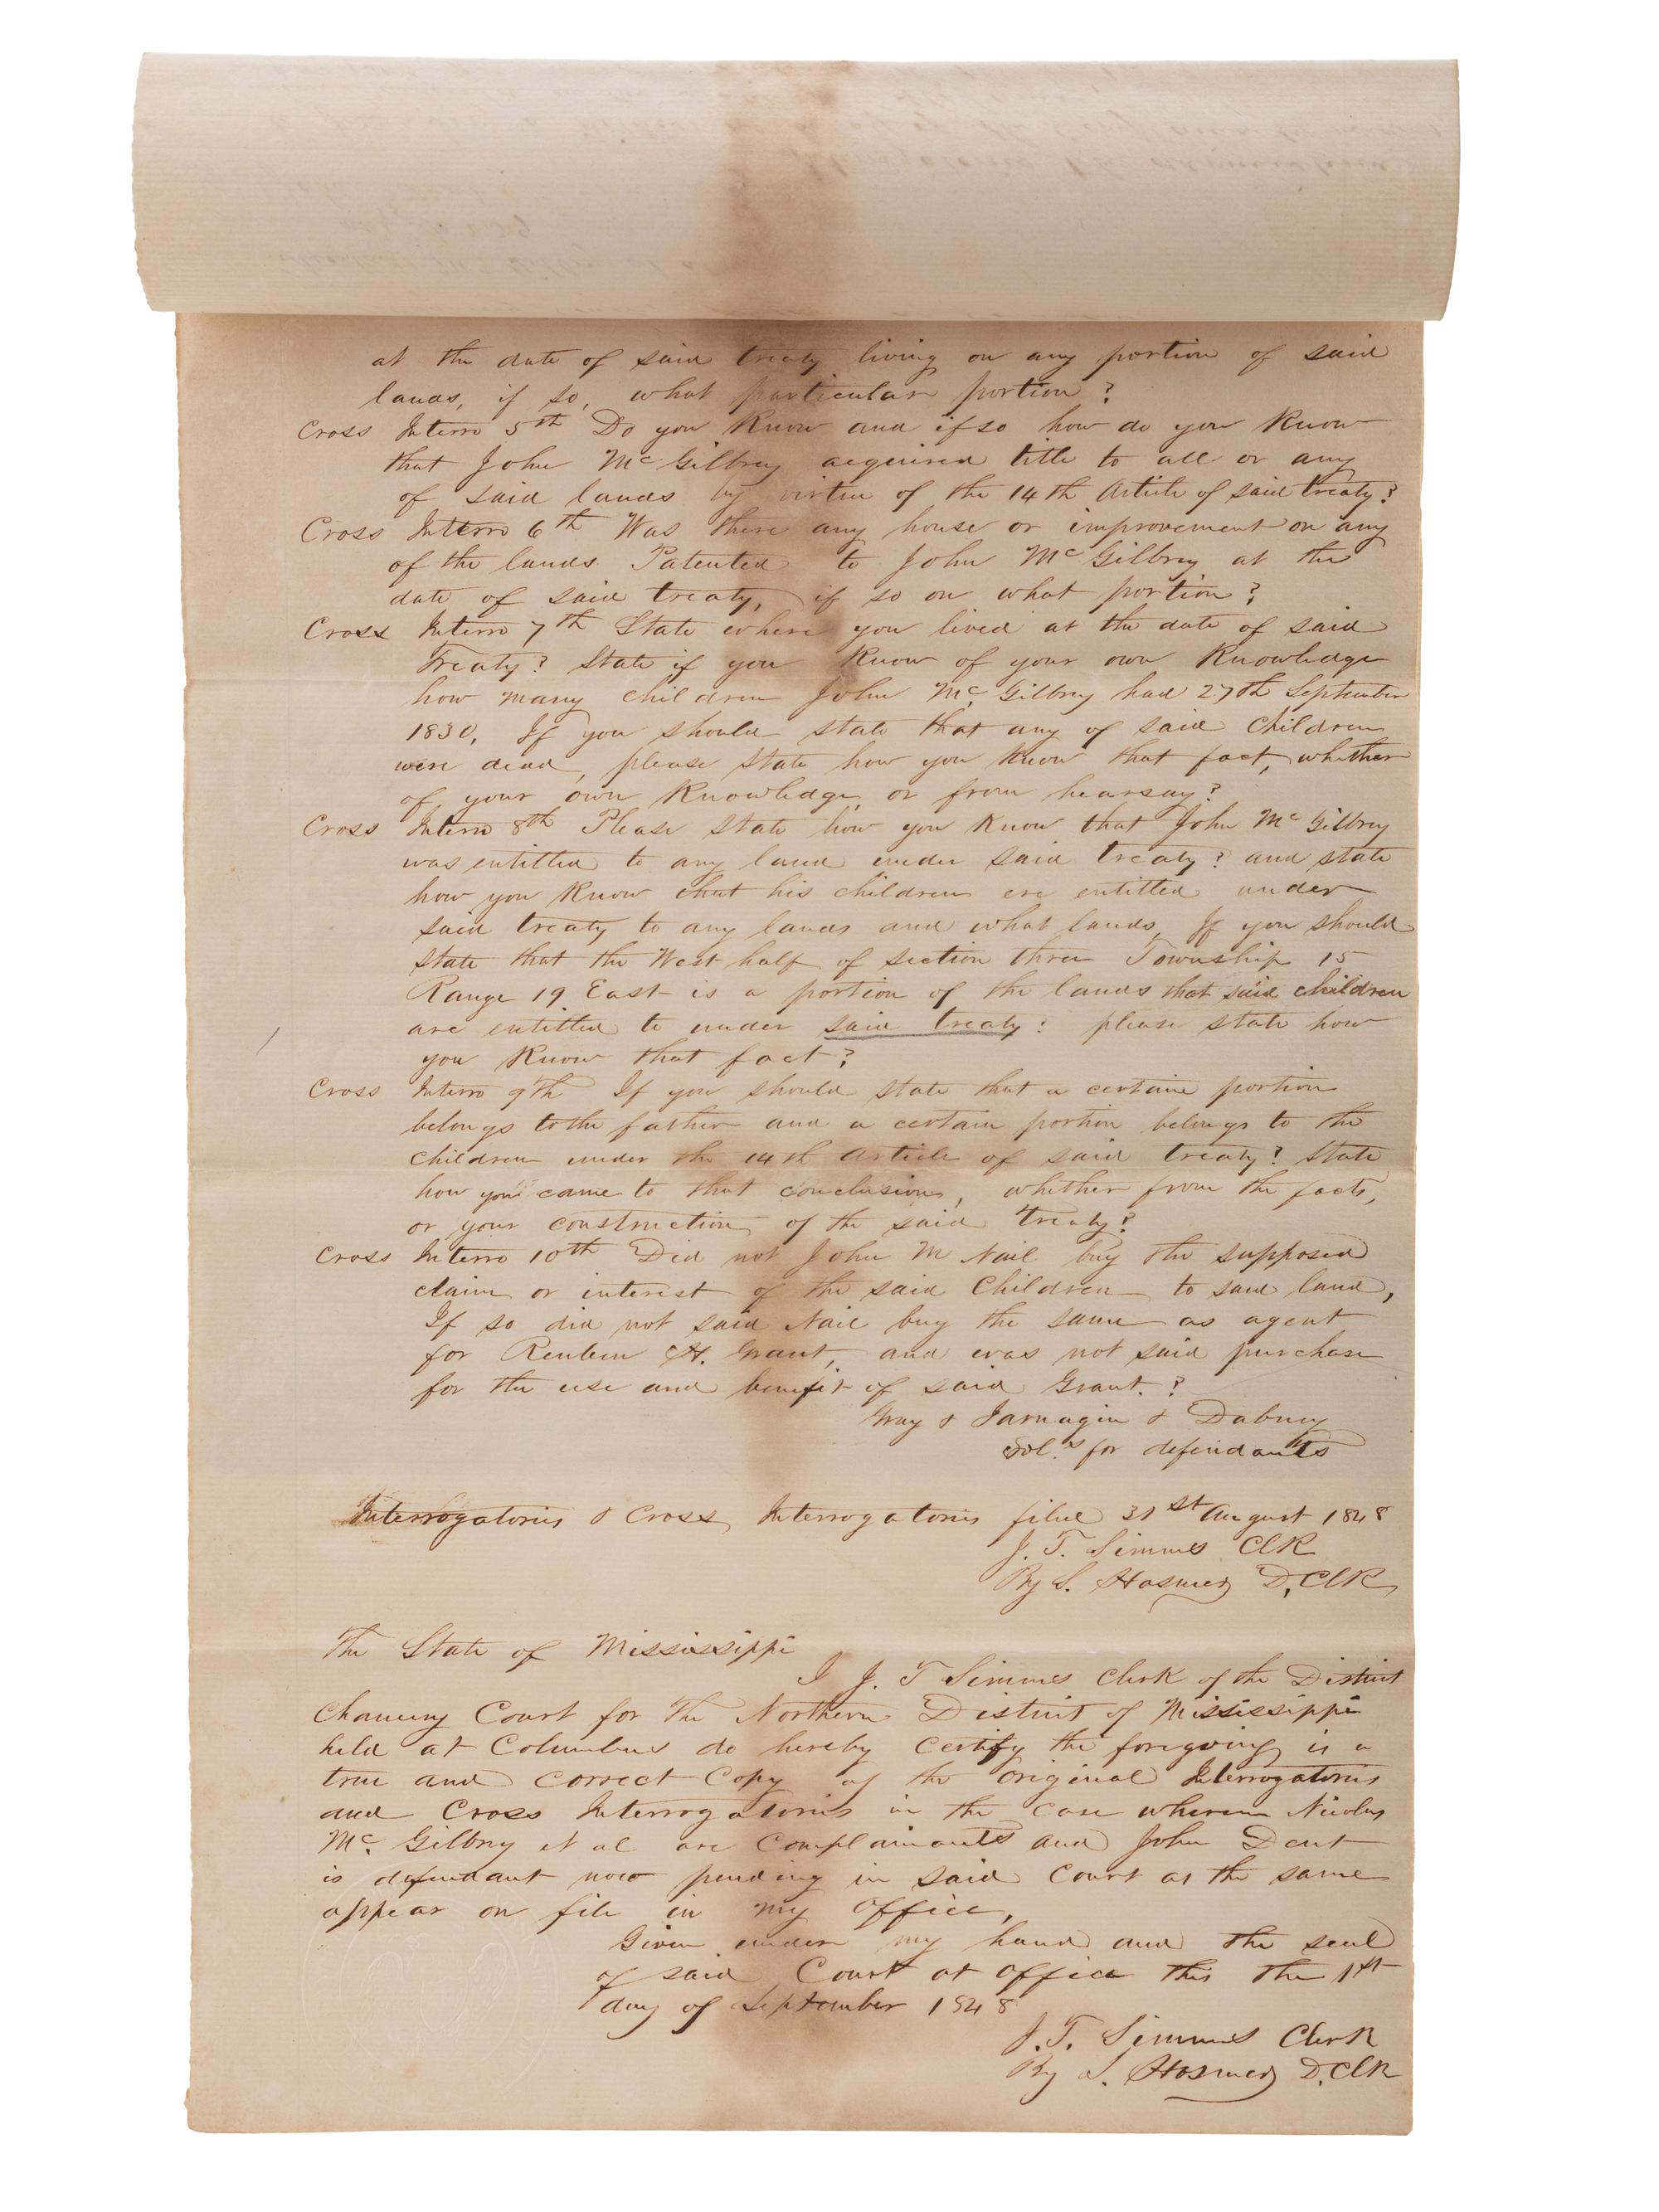 at the date of said treaty living on any portion of said
lands, if so, what particular portion?
Cross Interro 5th Do you Know and if so how do you Know
that John McGilbrey acquired title to all or any
of said lands by virtue of the 14th Article of said treaty?
Cross Interro 6th Was there any house or improvement on any
of the lands Patented to John McGilbrey at the
date of said treaty, if so on what portion?
Cross Interro 7th State where you lived at the date of said
Treaty? State if you Know of your own Knowledge
how many children John McGilbrey had 27th September
1830, If you should state that any of said Children
were dead, please state how you Know that fact, whether
of your own Knowledge or from hearsay?
Cross Interro 8th Please state how you Know that John McGilbrey
was entitled to any land under said treaty? and state
how you Know that his children are entitled under
said treaty to any lands and what lands, If you should
state that the West half of section three Township 15
Range 19 East is a portion of the lands that said children
are entitled to under said treaty: please state how
you Know that fact?
Cross Interro 9th If you should state that a certain portion
belongs to the father and a certain portion belongs to the
children under the 14th Article of said treaty? State
how you came to that conclusion, whether from the facts,
or your construction of the said treaty?
Cross Interro 10th Did not John M Nail buy the supposed
claim or interest of the said Children to said land,
If so did not said Nail buy the same as agent
for Reuben H. Grant, and was not said purchase
for the use and benefit of said Grant.?
Gray & Jarnagin & Dabney
Sol.s for defendants
Interrogatories & Cross Interrogatories filed 31st August 1848
J. T. Simms ClK
By S. Hosmer D. ClK
The State of Mississippi
I J. T Simms Clerk of the District
Chancery Court for The Northern District of Mississippi
held at Columbus do hereby Certify the foregoing is a
true and correct Copy of the original Interrogatories
and Cross Interrogatories in the Case wherein
McGilbrey et al are Complainants and John Dent
is defendant now pending in said Court as the same
appear on file in my office,
Given under my hand and the seal
of said Court at office this the 1st
day of September 1848
J. T. Simms Clerk
By S. Hosmer D. ClK